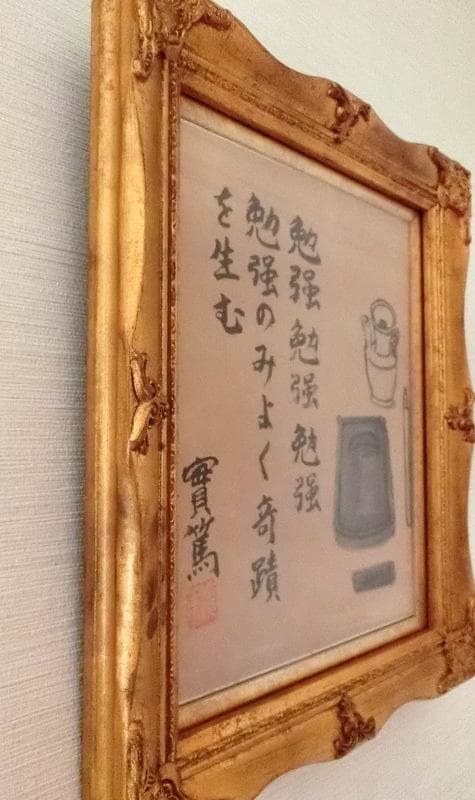 勉強勉強勉強
勉強のみよく奇蹟
を生む
實篤